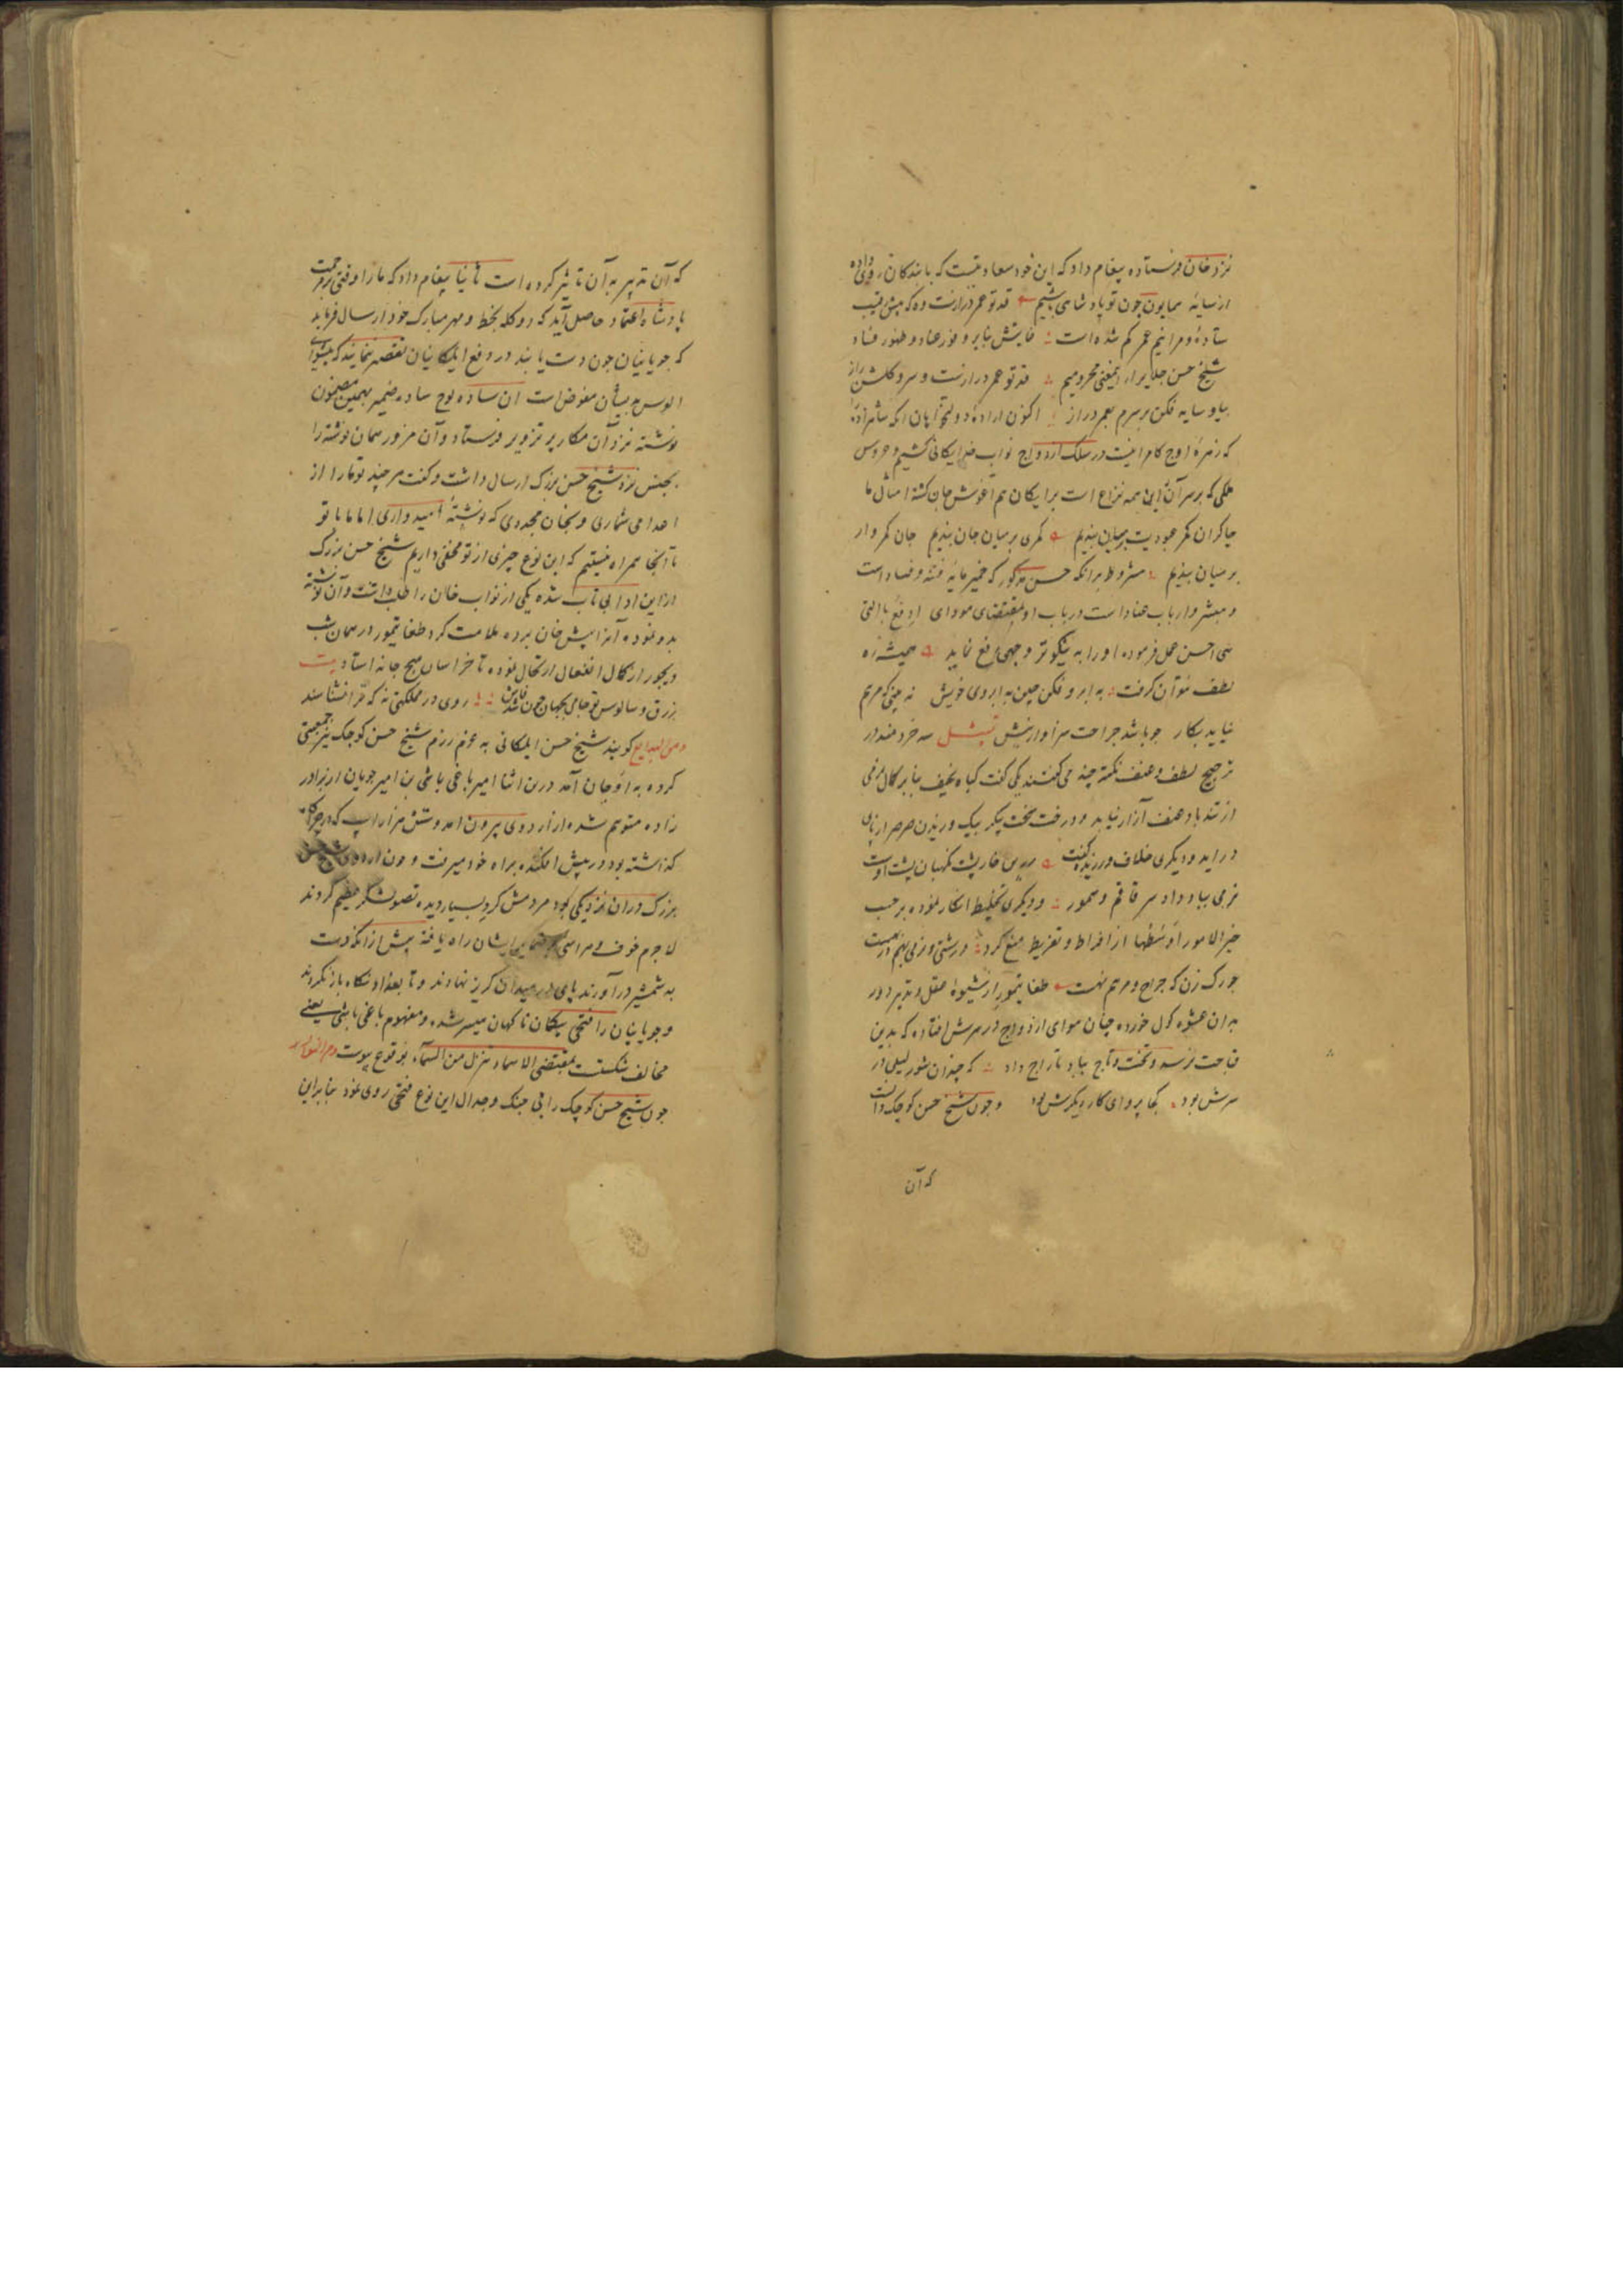 نزد خان فرستاده پیغام داد که این خود سعادتیست که بابندگان روی داده
از سایهٔ همایون چون تو پادشاهی باشیم قد تو عمر درازست وه که پیش رقیب
ستادهٔ و مرا نیم عمر کم شده است غایتش بنابر وفور عناد و ظهور فساد
شیخ حسن جلایر از این معنی محرومیم قد تو عمر درازست و سرو گلشن راز
بیا و سایه فکن بر سرم بعمر دراز اکنون ارادهٔ دولتخواهان انکه شاهزاده
که زهرهٔ اوج کامرانیست در سلک ازدواج نواب خدایکانی کشیم و عروس
ملکی که بر سر آن این همه نزاع است برایکان هم آغوش جان کشته امثال ما
چاکران کمر عبودیت بر میان بندیم کمری بر میان جان بندیم جان کمروار
بر میان بندیم مشروط برانکه حسن مذکور که خمیر مایهٔ فتنه و فساد است
و مبشر و ارباب عناد است در باب او بمقتضای مودای ادفع بالتی
هی احسن عمل فرموده او را به نیکوتر وجهی رفع نماید همیشه ره
لطف نتوان گرفت به ابرو فکن چین به ابروی خویش نه بینی که مرهم
نیاید بکار چو باشد جراحت سزاوار نیش تمثیل سه خردمند در
ترجیح لطف و عنف نکته چند می گفتند یکی گفت کیاه نحیف بنابر کمال نرمی
از تندباد عنف آزار نیابد و درخت سخت پیکر بیک وزیدن صرصر از پای
دراید و دیگری خلاف ورزیده گفت درین خارپشت نگهبان پشت اوست
نرمی بباد داد سر قاقم و سمور و دیگری تخلیط انکار نموده بر حسب
خیر الامور اوسطها از افراط و تفریط منع کرد درشتی و نرمی بهم در بهست
چو رک زن که جراح و مرهم نهست طغا یتمور از شیوهٔ عقل و تدبیر دور
بدان عشوه کول خورده چنان هوای ازدواج در سرش افتاده که بدین
قباحت نرسد و تخت و تاج بباد تاراج داد که چندان شور لیلی در
سرش بود کجا پروای کار دیگرش بود و چون شیخ حسن کوچک دانست
که آن
که آن تدبیر به آن تاثیر کرده است ثانیا پیغام داد که ما را وقتی بر مرحمت
پادشاه اعتماد حاصل آید که دو کلمه بخط و مهر مبارک خود ارسال فرماید
که چوپانیان چون دست یابند در دفع ایلکانیان تقصیر ننمایند که پیشوای
الوس به ایشان مفوض است ان ساده لوح ساده ضمیر بهمین مضمون
نوشته نزد آن مکار پر تزویر فرستاد و آن مزور همان نوشته را
بجنس نزد شیخ حسن بزرک ارسال داشت و گفت هر چند تو ما را از
اعدا می شماری و بخان مجددی که نوشتهٔ امیدواری اما ما با تو
تا آنجا همراه نیستیم که این نوع چیزی از تو مخفی داریم شیخ حسن بزرک
از این ادا بی تاب شده یکی از نواب خان را طلب داشت و آن نوشته
بدو نموده آنرا پیش خان برده ملامت کرد طغا تیمور در همان شب
دیجور از کمال انفعال ارتحال نموده تا خراسان هیچ جا نه استاد بیت
بزرق و سالوس تو جامی بجهان چون فاش شدی روی در مملکتی نه که ترا نشناسند
ومن البدایع گویند شیخ حسن ایلکانی به عزم رزم شیخ حسن کوچک نیز جمعیتی
کرده به اوجان آمد درین اثنا امیر یاغی باشی بن امیر چوپان از برادر
زاده متوهم شده از اردوی بیرون امد و شش هزار اسپ که در چراگاه
گذاشته بود در پیش افکنده براه خود میرفت و چون اردوی شیخ حسن
بزرک دران نزدیکی بود مردمش کرد بسیار دیده تصور لشکر عظیم کردند
لاجرم خوف و هراسی بر ضمایر ایشان راه یافته پیش از انکه دست
به شمشیر درآورند پای در میدان گریز نهادند و تا بغداد نگاه باز نکردند
و چوپانیان را فتحی بیکمان ناکهان میسر شده و مفهوم یاغی باشی یعنی
مخالف شکست بمقتضی الاسماء تنزل من السماء بوقوع پیوست
چون شیخ حسن کوچک را بی جنک و جدال این نوع فتحی روی نمود بنابراین